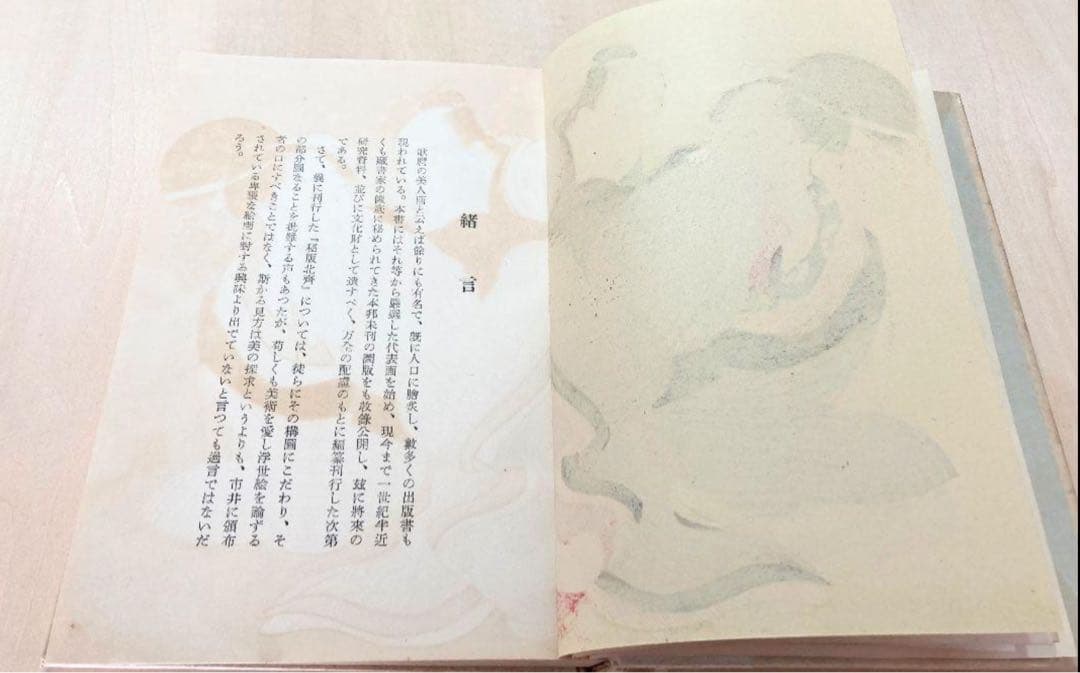 緒言
歌麿の美人画と云えば余りにも有名で、既に人口に膾炙し、数多くの出版書も
現われている。本書にはそれ等から厳選した代表画を始め、現今まで一世紀半近
くも蔵書家の陳蔵に秘められてきた本邦未刊の圖版をも收錄公開し、玆に將來の
研究資料、並びに文化財として遺すべく、万全の配慮のもとに編纂刊行した次第
である。
さて、曩に刊行した『秘版北斎』については、徒らにその構圖にこだわり、そ
の部分圖なることを批難する声もあつたが、苟しくも美術を愛し浮世絵を論ずる
者の口にすべきことではなく、斯かる見方は美の探求というよりも、市井に頒布
されている卑猥な絵画に対する興味より出でていないと言つても過言ではないだ
ろう。